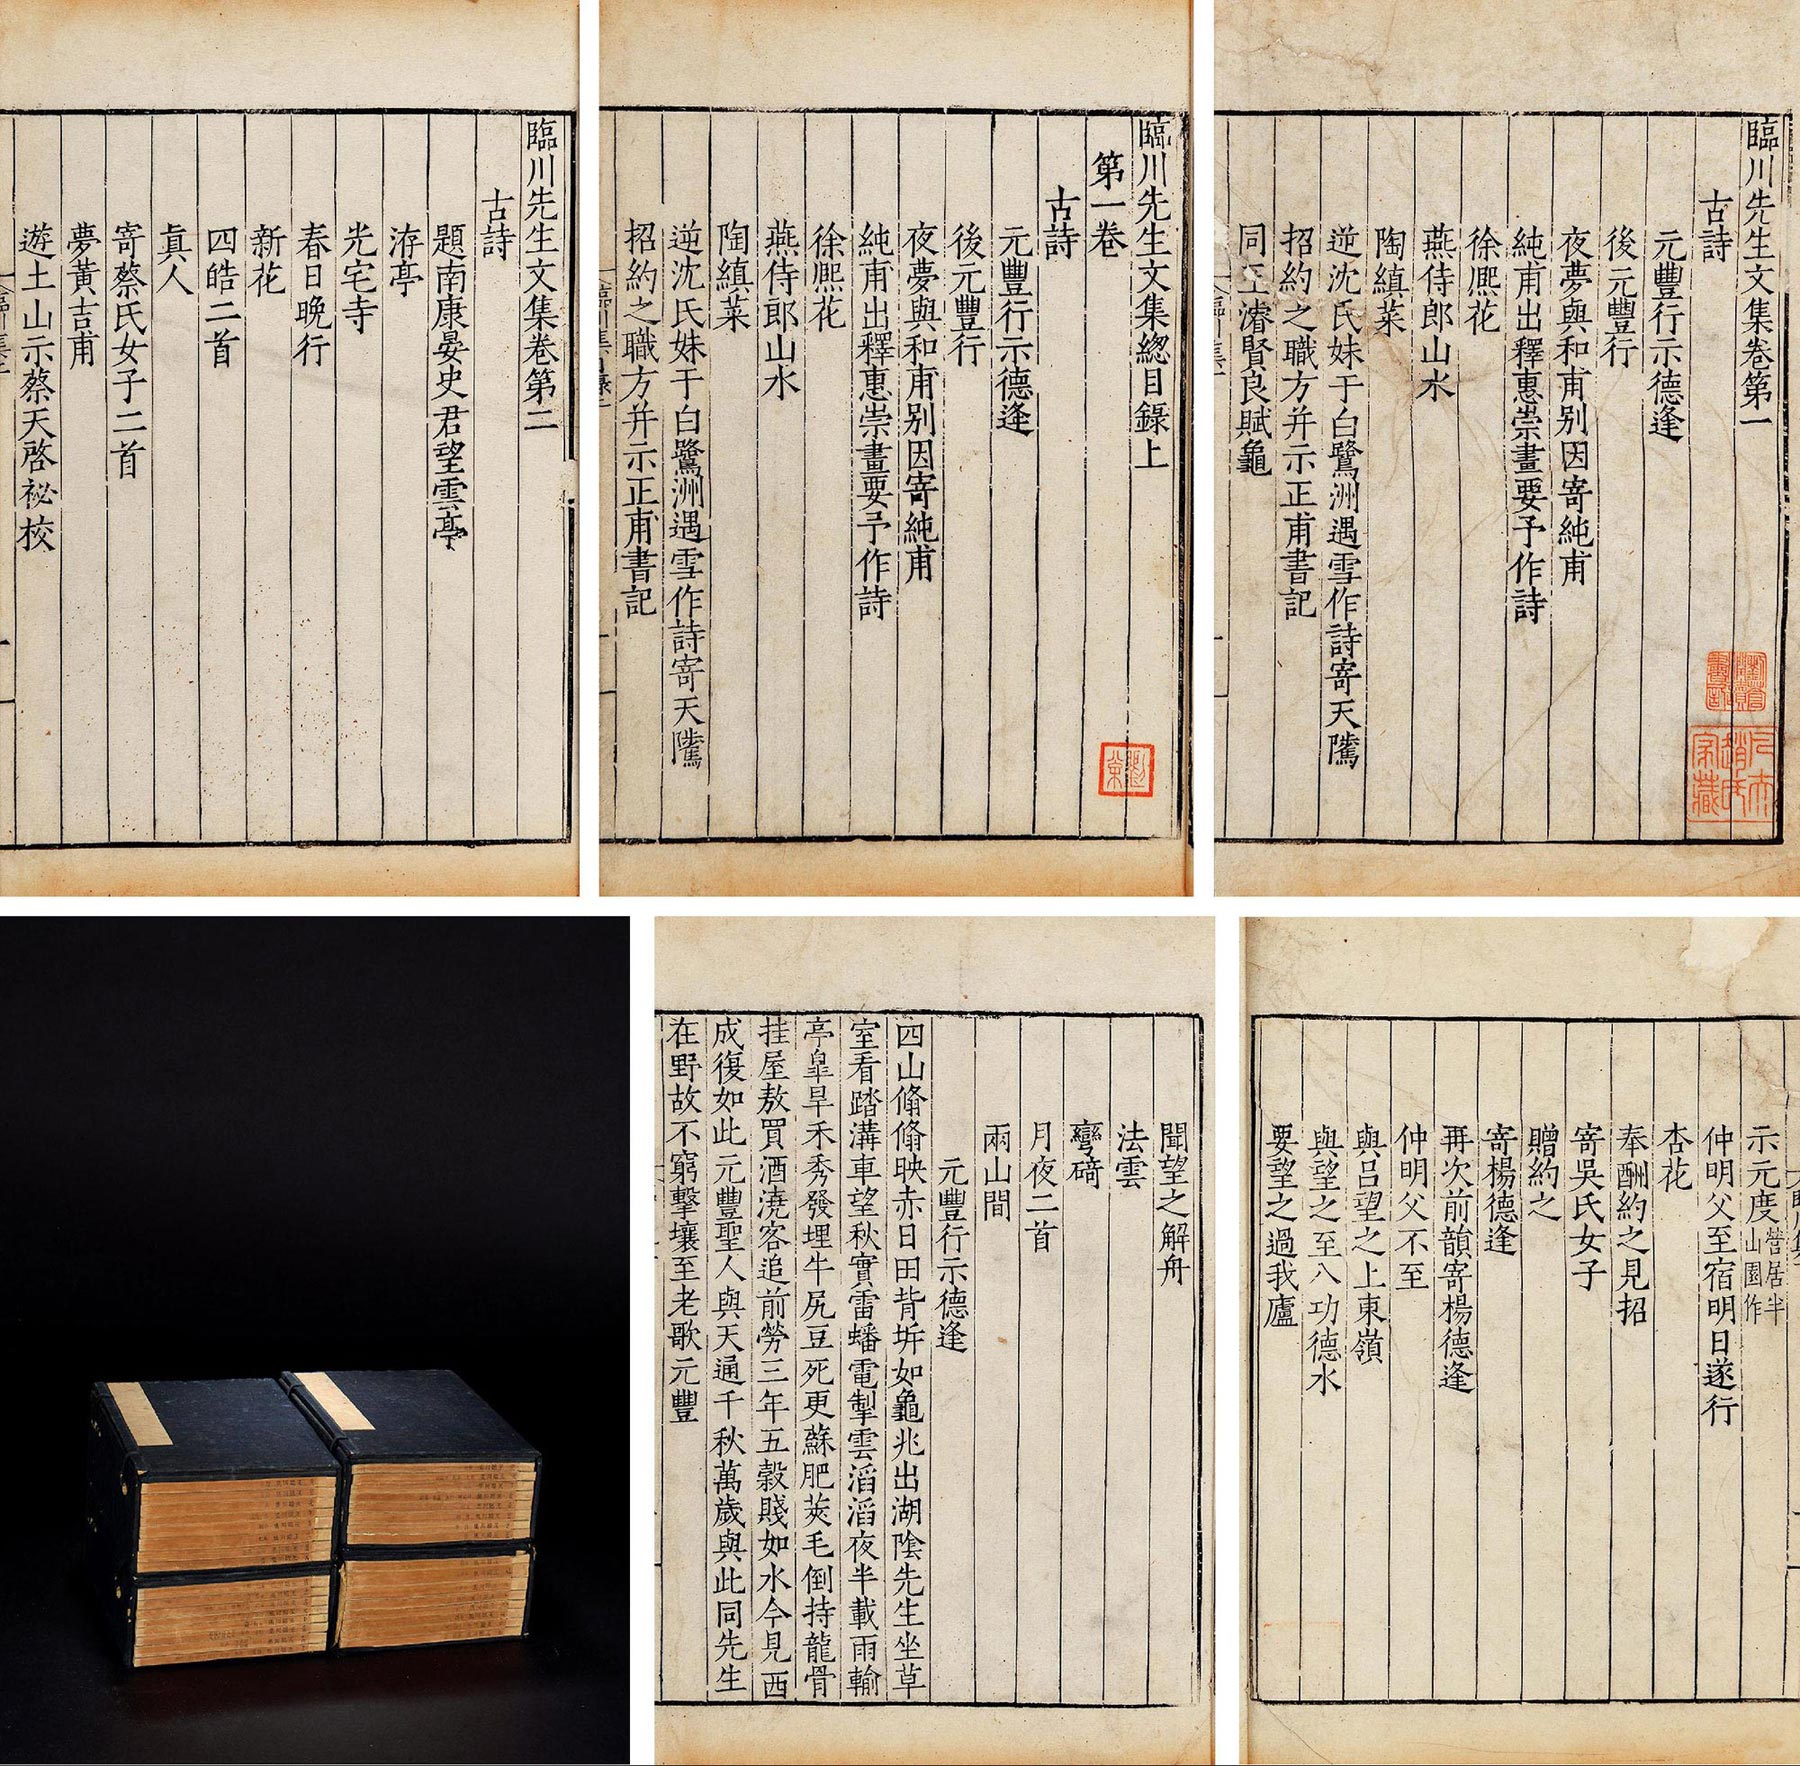 臨川先生文集卷第二
古詩
題南康晏史君望雲亭
洊亭
光宅寺
春日晚行
新花
四皓二首
真人
寄蔡氏女子二首
夢黃吉甫
遊土山示蔡天啓祕校
臨川先生文集總目錄上
第一卷
古詩
元豐行示德逢
後元豐行
夜夢與和甫别因寄純甫
純甫出釋惠崇畫要予作詩
徐熈花
燕侍郎山水
陶縝菜
逆沈氏妹于白鷺洲遇雪作詩寄天隲
招約之職方并示正甫書記
臨川先生文集卷第一
古詩
元豐行示德逢
後元豐行
夜夢與和甫别因寄純甫
純甫出釋惠崇畫要予作詩
徐熈花
燕侍郎山水
陶縝菜
逆沈氏妹于白鷺洲遇雪作詩寄天隲
招約之職方并示正甫書記
同王濬賢良賦龜
趙氏
家藏
聞望之解舟
法雲
彎碕
月夜二首
兩山間
元豐行示德逢
四山翛翛映赤日田背坼如龜兆出湖陰先生坐草
室看踏溝車望秋實雷蟠電掣雲滔滔夜半載雨輸
亭皐旱禾秀發埋牛尻豆死更蘇肥莢毛倒持龍骨
挂屋敖買酒澆客追前勞三年五穀賤如水今見西
成復如此元豐聖人與天通千秋萬歲與此同先生
在野故不窮擊壤至老歌元豐
示元度營居半山園作
仲明父至宿明日遂行
杏花
奉酬約之見招
寄吳氏女子
贈約之
寄楊德逢
再次前韻寄楊德逢
仲明父不至
與呂望之上東嶺
與望之至八功德水
要望之過我廬